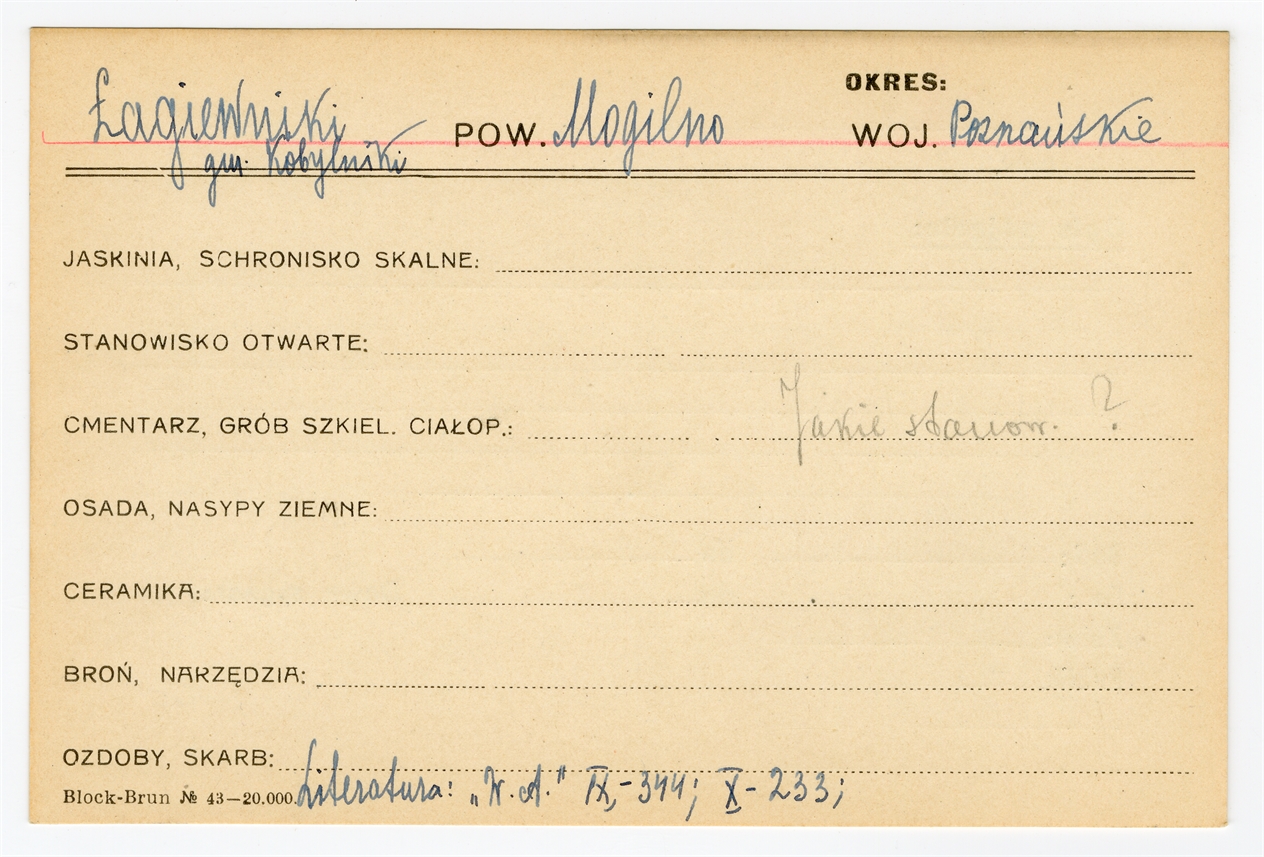 OKRES:
Łagiewniki POW. Mogilno WOJ. Poznańskie
gm. Kobylniki
JASKINIA, SCHRONISKO SKALNE:
STANOWISKO OTWARTE:
CMENTARZ, GRÓB SZKIEL. CIAŁOP.: Jakie stanow. ?
OSADA, NASYPY ZIEMNE:
CERAMIKA:
BROŃ, NARZĘDZIA:
OZDOBY, SKARB:
Block-Brun № 43—20.000. Literatura: „W. A." IX,-344; X-233;